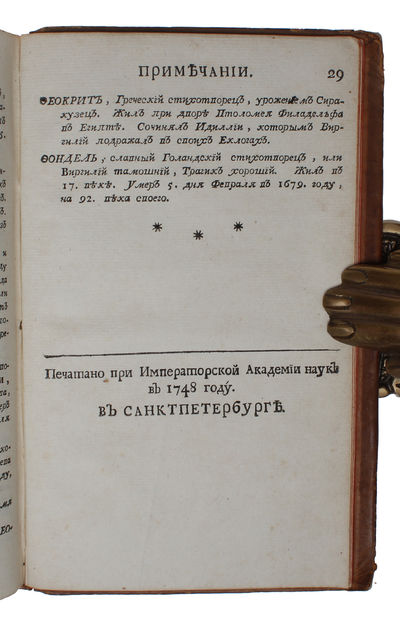 ПРИМѢЧАНІИ. 29
ѲЕОКРИТЪ, Греческій стихотворецъ, уроженемъ Сира-
кузецъ. Жилъ при дворѣ Птоломея Филадельфа
въ Египтѣ. Сочинялъ Идилліи, которымъ Вир-
гилій подражалъ въ своихъ Еклогахъ.
ѲОНДЕЛЬ, славный Голандскій стихотворецъ, или
Виргилій тамошній, Трагикъ хорошій. Жилъ въ
17. вѣкѣ. Умеръ 5. дня Февраля въ 1679. году,
на 92. вѣка своего.
* * *
Печатано при Императорской Академіи наукъ
въ 1748 году.
ВЪ САНКТПЕТЕРБУРГѢ.